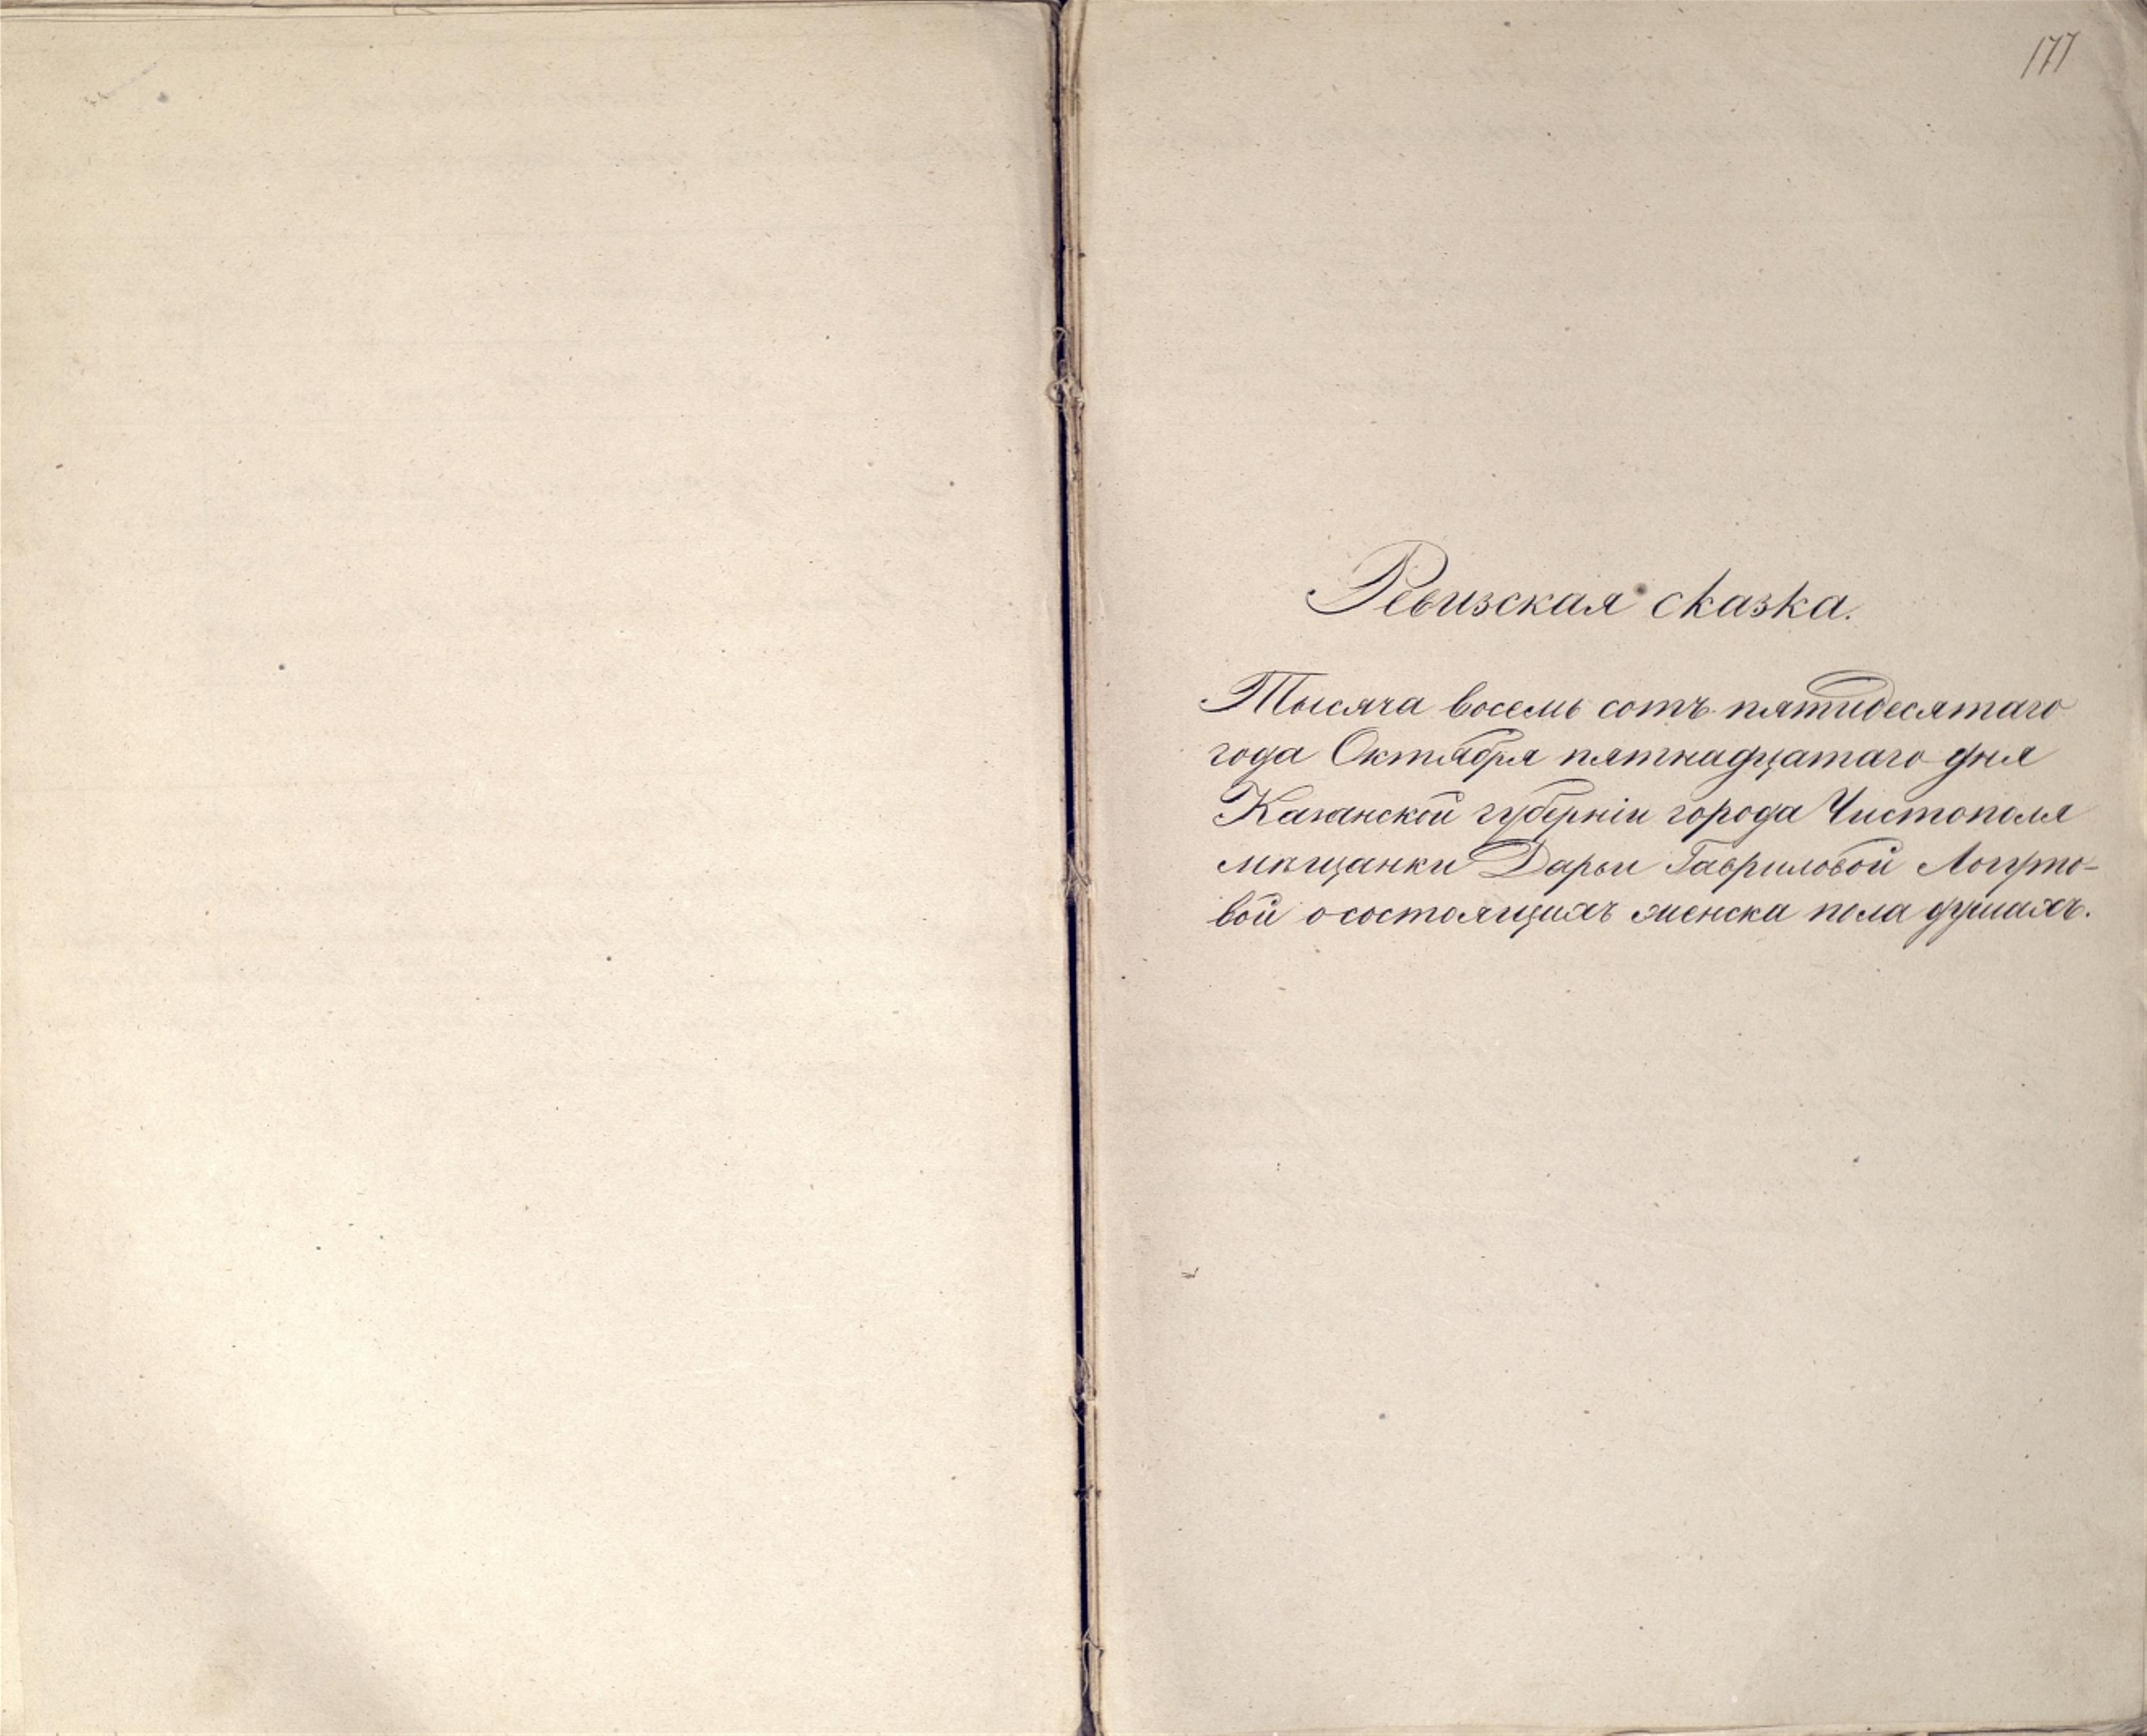 177
Ревизская сказка.
Тысяча восемь сотъ пятидесятаго
года Октября пятнадцатаго дня
Казанской губерніи города Чистополя
мѣщанки Дарьи Гавриловой Логуто-
вой о состоящихъ женска пола душахъ.